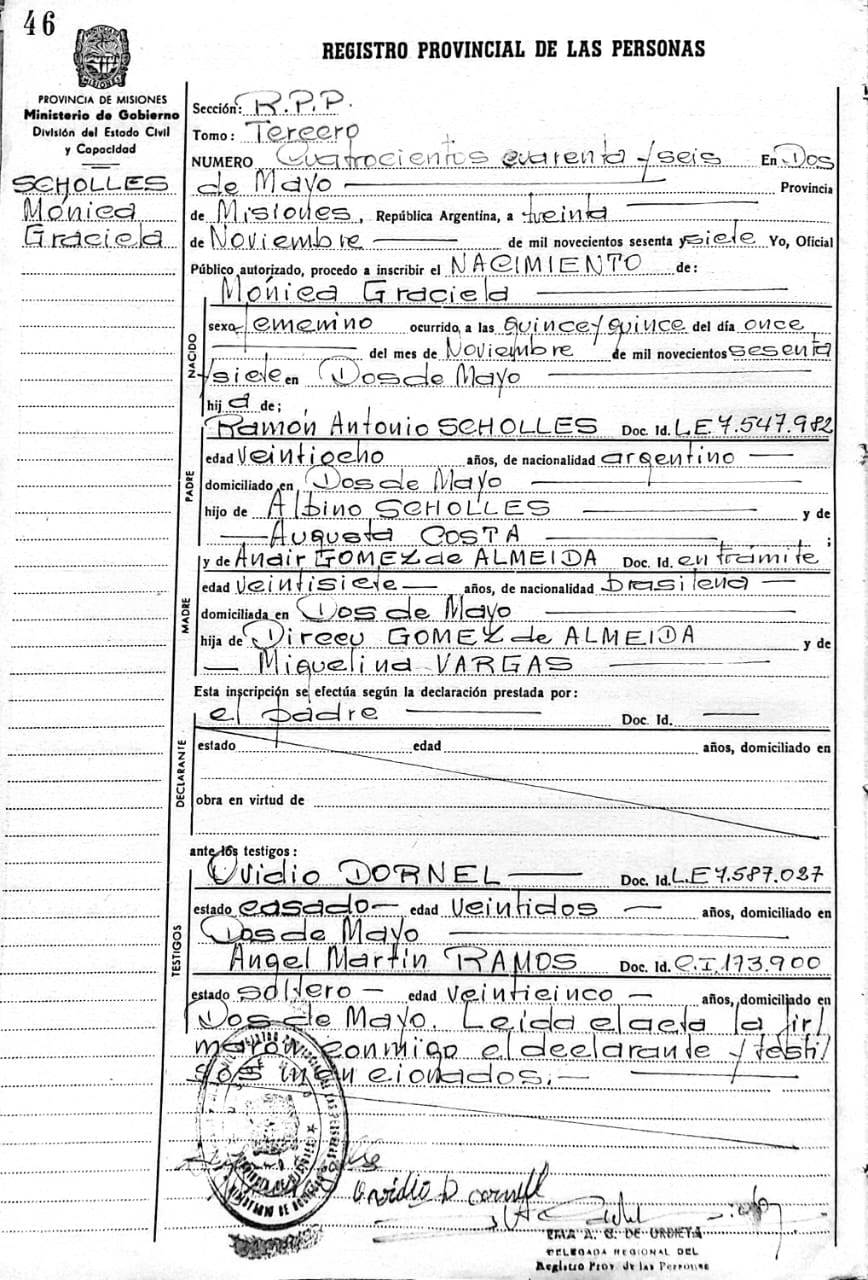 46
REGISTRO PROVINCIAL DE LAS PERSONAS
PROVINCIA DE MISIONES
Ministerio de Gobierno
División del Estado Civil
y Capacidad
SCHOLLES
Mónica
Graciela
Sección: R.P.P.
Tomo: Tercero
NUMERO Cuatrocientos cuarenta y seis En Dos
de Mayo Provincia
de Misiones, República Argentina, a treinta
de Noviembre de mil novecientos sesenta y siete Yo, Oficial
Público autorizado, procedo a inscribir el NACIMIENTO de:
Mónica Graciela
NACIDO
sexo femenino ocurrido, a las quince y quince del día once
del mes de Noviembre de mil novecientos sesenta
y siete en Dos de Mayo
hija de;
PADRE
Ramón Antonio SCHOLLES Doc. Id. L.E. 7.547.982
edad veintiocho años, de nacionalidad argentino
domiciliado en Dos de Mayo
hijo de Albino SCHOLLES y de
Augusta COSTA ;
MADRE
y de Anair GOMEZ de ALMEIDA Doc. Id. en trámite
edad veintisiete años, de nacionalidad brasilena
domiciliada en Dos de Mayo
hija de Dirceu GOMEZ de ALMEIDA y de
Miguelina VARGAS
DECLARANTE
Esta inscripción se efectúa según la declaración prestada por:
el padre Doc. Id.
estado edad años, domiciliado en
obra en virtud de
TESTIGOS
ante los testigos:
Ovidio DORNEL Doc. Id. L.E 7.587.027
estado casado edad veintidos años, domiciliado en
Dos de Mayo
Angel Martín RAMOS Doc. Id. C.I. 173.900
estado soltero edad veinticinco años, domiciliado en
Dos de Mayo. Leída el acta la fir/
maron conmigo el declarante y testi/
gos mencionados.
Ovidio Dornell
EMA A. G. DE URDETA
DELEGADA REGIONAL DEL
Registro Prov. de las Personas